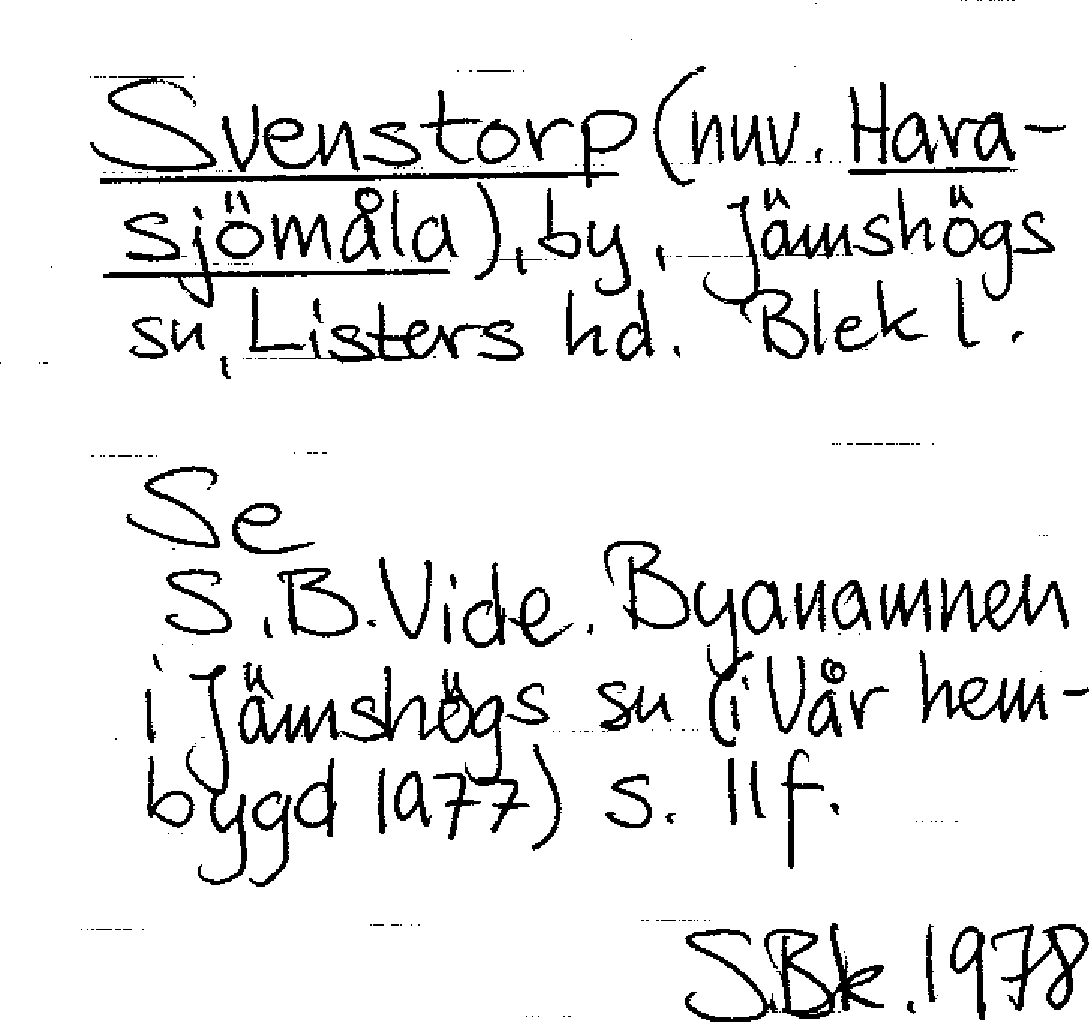 Svenstorp (nuv. Hara-
sjömåla), by, Jämshögs
sn, Listers hd. Blek l.
Se
S. B. Vide. Byanamnen
i Jämshögs sn (i Vår hem-
bygd 1977) s. 11f.
SBk. 1978